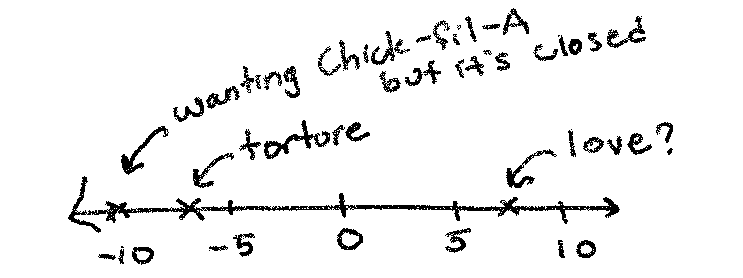 wanting Chick-fil-A
but it's closed
torture
love?
-10 -5 0 5 10